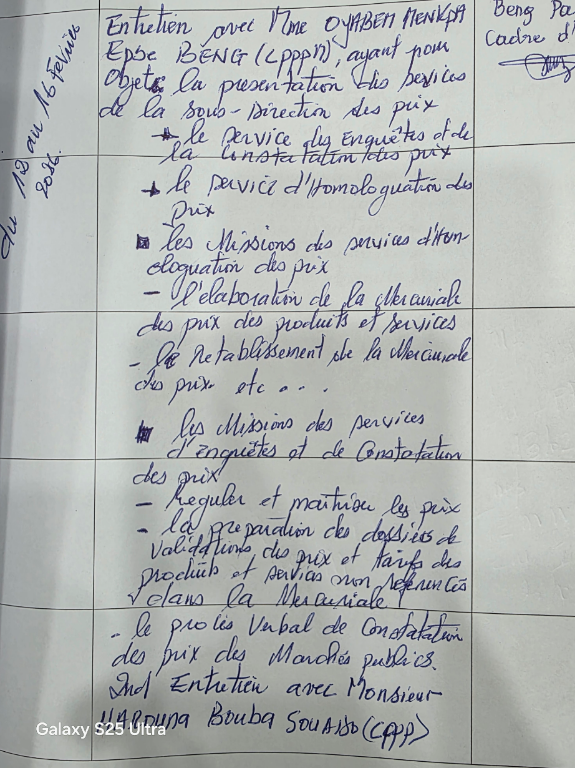 Entretien avec Mme OYABEN MENKPA
Epse BENG (CPPPN), ayant pour
Objet la presentation des services
de la sous-Direction des prix
+ le service des Enquêtes et de
la Constatation des prix
+ le service d'Homologuation des
prix
les Missions des services d'Hom-
eloguation des prix
- l'elaboration de la Mercuriale
des prix des produits et services
- le Retablissement de la Mercuriale
des prix. etc . . . .
les Missions des services
d'enquêtes et de Constatation
des prix
- Reguler et maitriser les prix
- la preparation des dossiers de
validations des prix et tarifs des
produits et services non referencés
dans la Mercuriale
- le procès Verbal de Constatation
des prix des Marchés publics.
2nd Entretien avec Monsieur
HAROUNA Bouba SOUAIBO (CPPP)
du 12 au 16 Février
2026.
Beng Pa
Cadre d'
Galaxy S25 Ultra